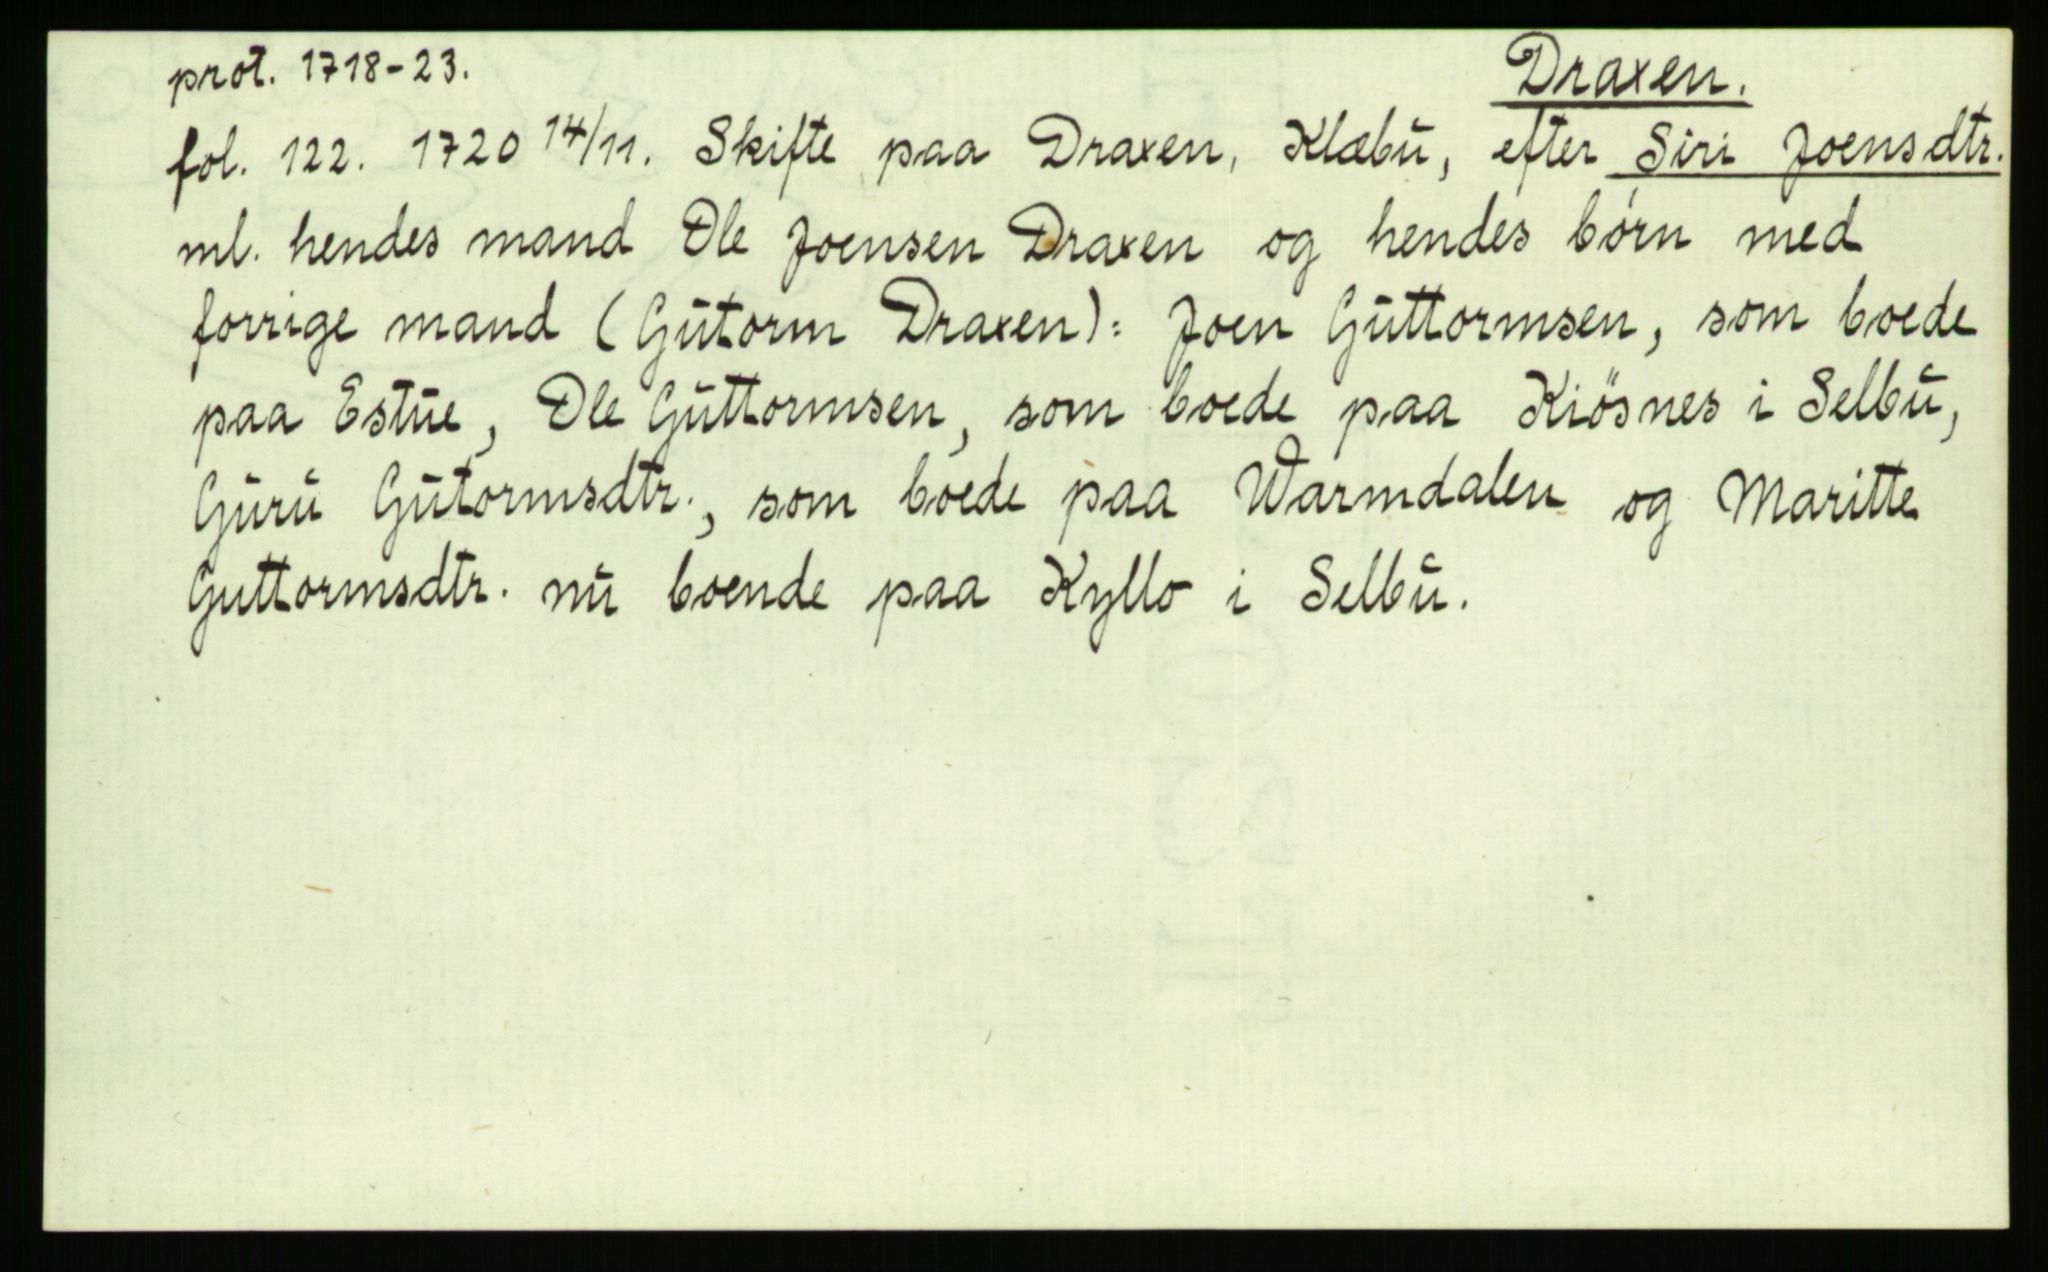 prot. 1718-23. Draxen.
fol. 122. 1720 14/11. Skifte paa Draxen, Klæbu, efter Siri Joensdtr.
ml. hendes mand Ole Joensen Draxen og hendes børn med
forrige mand (Gutorm Draxen): Joen Guttormsen, som boede
paa Estue, Ole Guttormsen, som boede paa Kiösnes i Selbu,
Guru Gutormsdtr., som boede paa Warmdalen og Maritte
Guttormsdtr. nu boende paa Kyllo i Selbu.